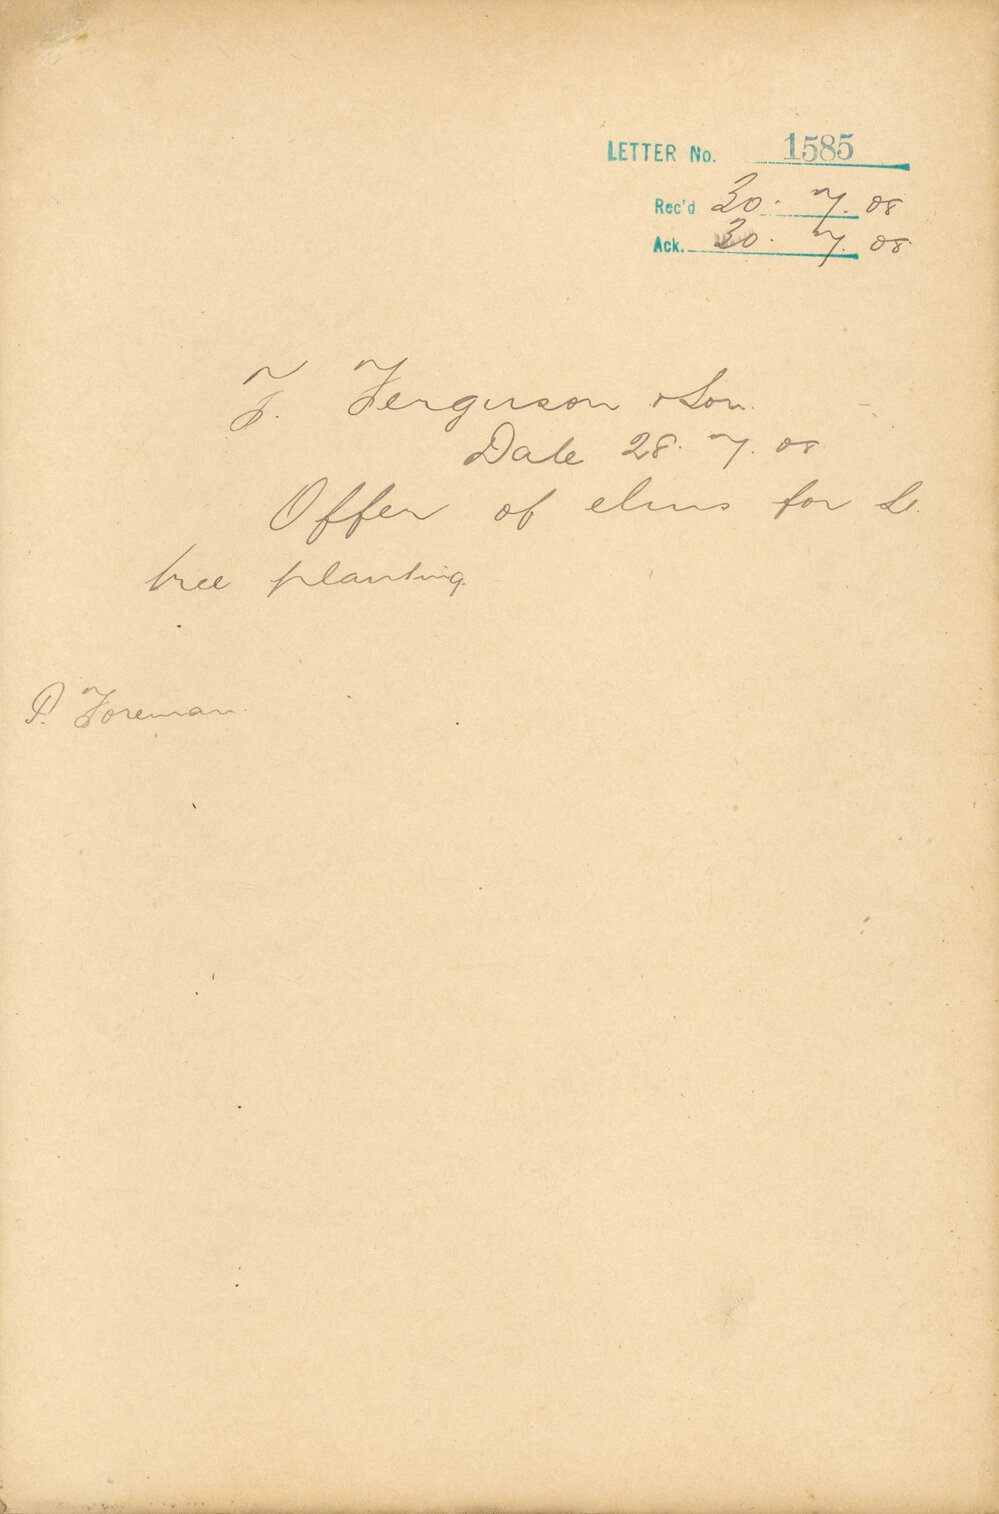 LETTER No. 1585
Rec'd 30. 7. 08
Ack. 30. 7. 08
F. Ferguson & Son.
Date 28. 7. 08
Offer of elms for St.
tree planting.
P. Foreman.